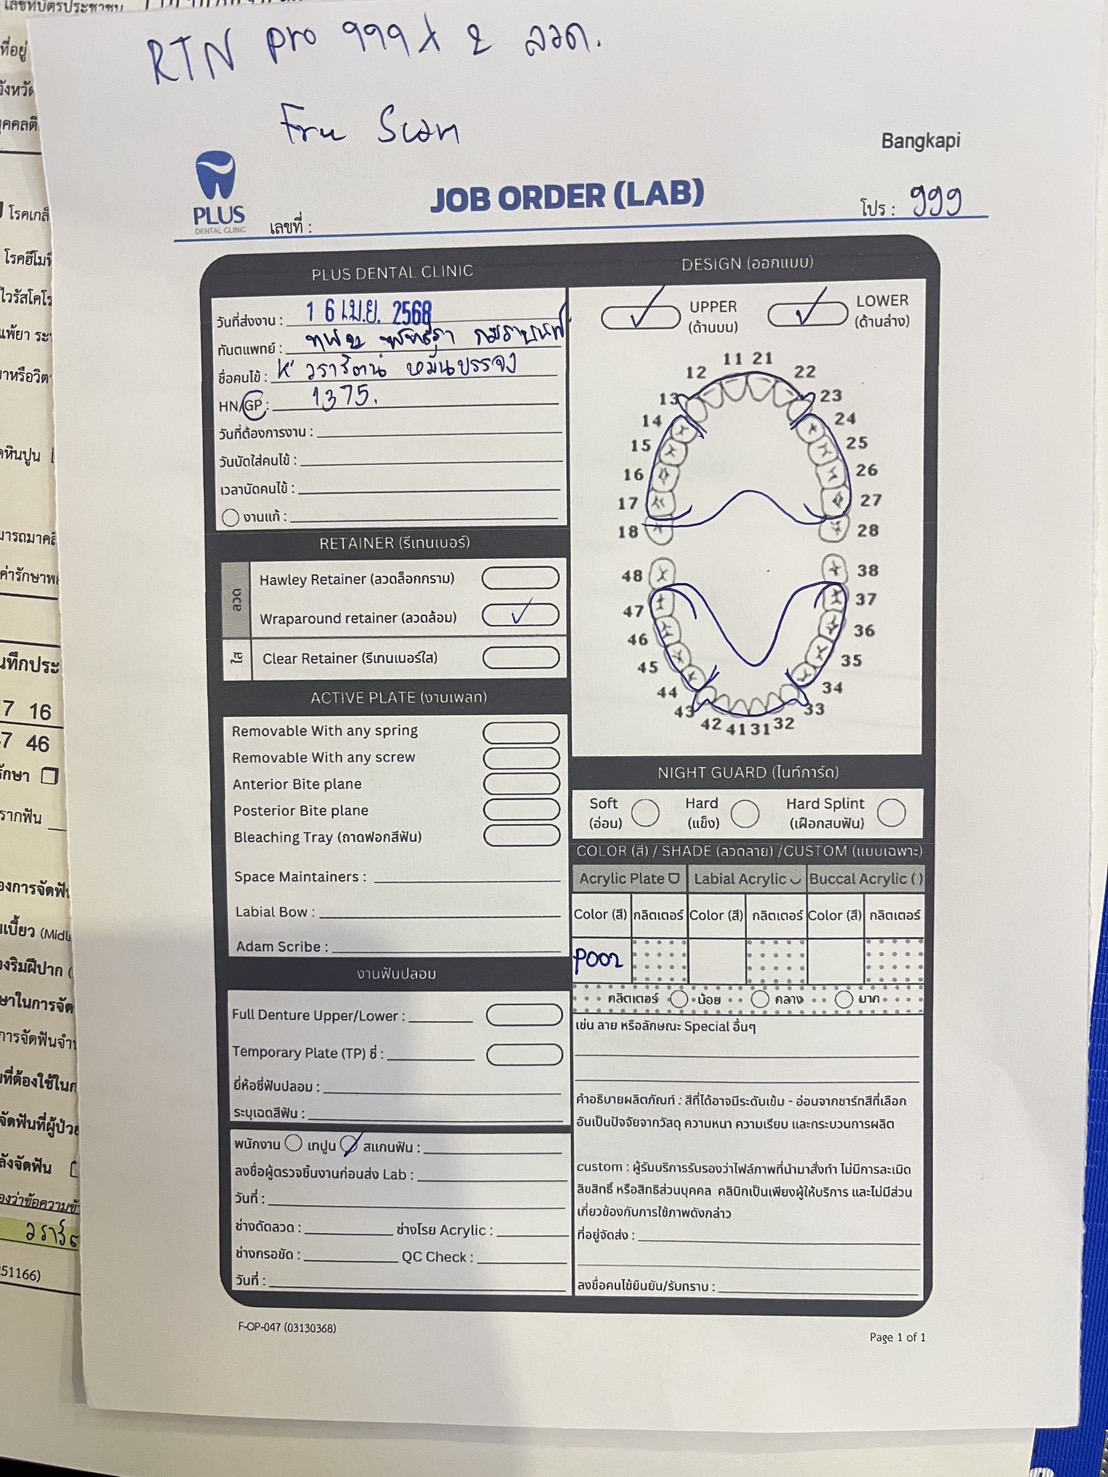 RTN pro 999 x 2 ลวด.
Free Scan
Bangkapi
PLUS
DENTAL CLINIC
JOB ORDER (LAB)
เลขที่ :
โปร : 999
PLUS DENTAL CLINIC
วันที่ส่งงาน : 16 เม.ย. 2568
ทันตแพทย์ :
ชื่อคนไข้ : K' วรารัตน์ หมั่นบรรจง
HN/GP : 1375.
วันที่ต้องการงาน :
วันนัดใส่คนไข้ :
เวลานัดคนไข้ :
งานแก้ :
RETAINER (รีเทนเนอร์)
ลวด
Hawley Retainer (ลวดล็อกกราม)
Wraparound retainer (ลวดล้อม)
ใส
Clear Retainer (รีเทนเนอร์ใส)
ACTIVE PLATE (งานเพลท)
Removable With any spring
Removable With any screw
Anterior Bite plane
Posterior Bite plane
Bleaching Tray (ถาดฟอกสีฟัน)
Space Maintainers :
Labial Bow :
Adam Scribe :
งานฟันปลอม
Full Denture Upper/Lower :
Temporary Plate (TP) ซี่ :
ยี่ห้อซี่ฟันปลอม :
ระบุเฉดสีฟัน :
พนักงาน เทปูน สแกนฟัน :
ลงชื่อผู้ตรวจชิ้นงานก่อนส่ง Lab :
วันที่ :
ช่างดัดลวด : ช่างโรย Acrylic :
ช่างกรอขัด : QC Check :
วันที่ :
DESIGN (ออกแบบ)
UPPER
(ด้านบน)
LOWER
(ด้านล่าง)
11 21
12 22
13 23
14 24
15 25
16 26
17 27
18 28
48 38
47 37
46 36
45 35
44 34
43 33
42 41 31 32
NIGHT GUARD (ไนท์การ์ด)
Soft
(อ่อน)
Hard
(แข็ง)
Hard Splint
(เฝือกสบฟัน)
COLOR (สี) / SHADE (ลวดลาย) /CUSTOM (แบบเฉพาะ)
Acrylic Plate Labial Acrylic Buccal Acrylic ( )
Color (สี) กลิตเตอร์ Color (สี) กลิตเตอร์ Color (สี) กลิตเตอร์
P002
กลิตเตอร์ น้อย กลาง มาก
เช่น ลาย หรือลักษณะ Special อื่นๆ
คำอธิบายผลิตภัณฑ์ : สีที่ได้อาจมีระดับเข้ม - อ่อนจากชาร์ทสีที่เลือก
อันเป็นปัจจัยจากวัสดุ ความหนา ความเรียบ และกระบวนการผลิต
custom : ผู้รับบริการรับรองว่าไฟล์ภาพที่นำมาสั่งทำ ไม่มีการละเมิด
ลิขสิทธิ์ หรือสิทธิส่วนบุคคล คลินิกเป็นเพียงผู้ให้บริการ และไม่มีส่วน
เกี่ยวข้องกับการใช้ภาพดังกล่าว
ที่อยู่จัดส่ง :
ลงชื่อคนไข้ยืนยัน/รับทราบ :
F-OP-047 (03130368)
Page 1 of 1